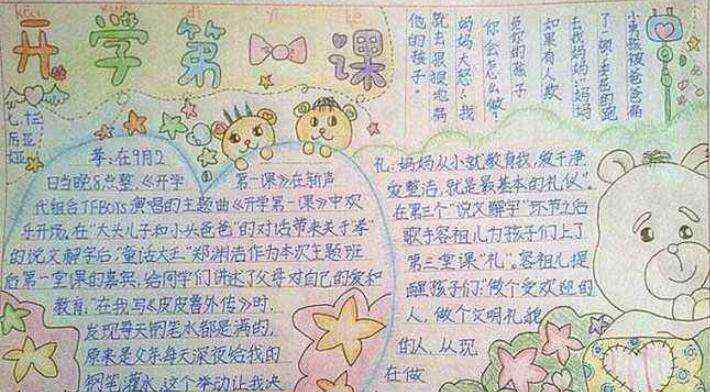 开学第一课
小男孩被爸爸痛
了一顿,委屈的跑
去找妈妈:"妈妈
如果有人欺
负你的孩子
你会怎么做?
妈妈大怒:我
就去狠狠地揍
他的孩子。
孝,在9月2
日当晚8点整,《开学 第一课》在新声
代组合TFBOYS演唱的主题曲《开学第一课》中欢
乐开场,在"大头儿子和小头爸爸"的对话带来关于孝"
的说文解字后,"童话大王"郑渊洁作为本次主题班
后第一堂课的嘉宾,给同学们讲述了父母对自己的爱和
教育,"在我写《皮皮鲁外传》时,
发现每天钢笔水都是满的,
原来是父亲每天深夜给我的
钢笔灌水,这个举动让我决
礼,妈妈从小就教育我,
安整洁,就是最基本的礼仪"。
在第三个"说文解字"环节之后
歌手容祖儿为孩子们上了
第三堂课"礼"。容祖儿提
醒孩子们:"做个受欢迎的
人,做个文明礼貌
的人,从现
在做